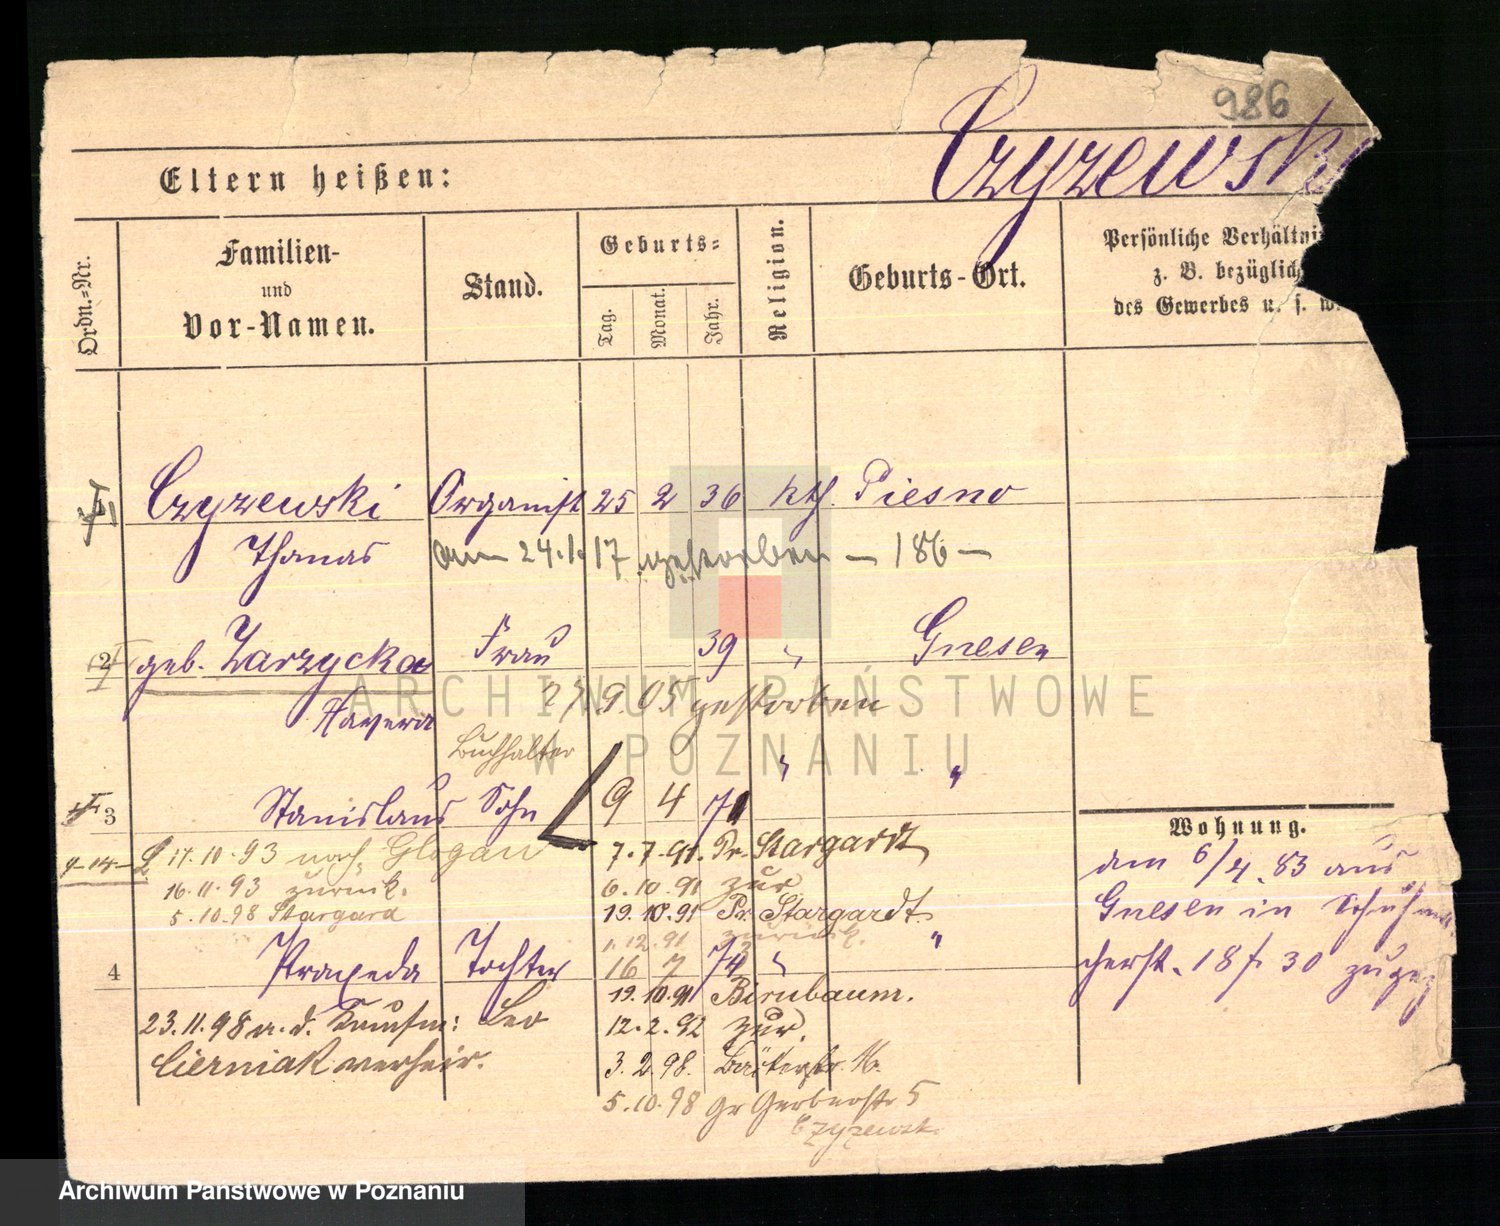 986
Czyzewsk
Eltern heißen:
Ordn.=Nr.
Familien-
und
Vor-Namen.
Stand.
Geburts=
Tag.
Monat.
Jahr.
Religion.
Geburts-Ort.
Persönliche Verhältni
z. B. bezüglich
des Gewerbes u. s. w.
1 Czyzewski Organist 25 2 36 kth. Piesno
Thomas am 24.1.17 gestorben — 186 —
2 geb. Zarzycka Frau 39 " Gnesen
Xaveria 27.9.05 gestorben
Buchhalter
3 Stanislaus Sohn 9 4 71 " "
17.10.93 nach Glogau 7.7.91. Pr. Stargardt
16.11.93 zurück. 6.10.91 zur
5.10.98 Stargard 19.10.91 Pr. Stargardt
1.12.91 zurück.
4 Praxeda Tochter 16 7 74 " "
19.10.91 Birnbaum.
23.11.98 a. d. Kaufm: Leo 12.2.92 zur.
Cierniak verheir. 3.2.98. Bäckerstr.
5.10.98 Gr Gerberstr 5
Czyzewsk.
Wohnung.
am 6/4.83 aus
Gnesen in
18 f 30
ARCHIWUM PAŃSTWOWE
W POZNANIU
Archiwum Państwowe w Poznaniu